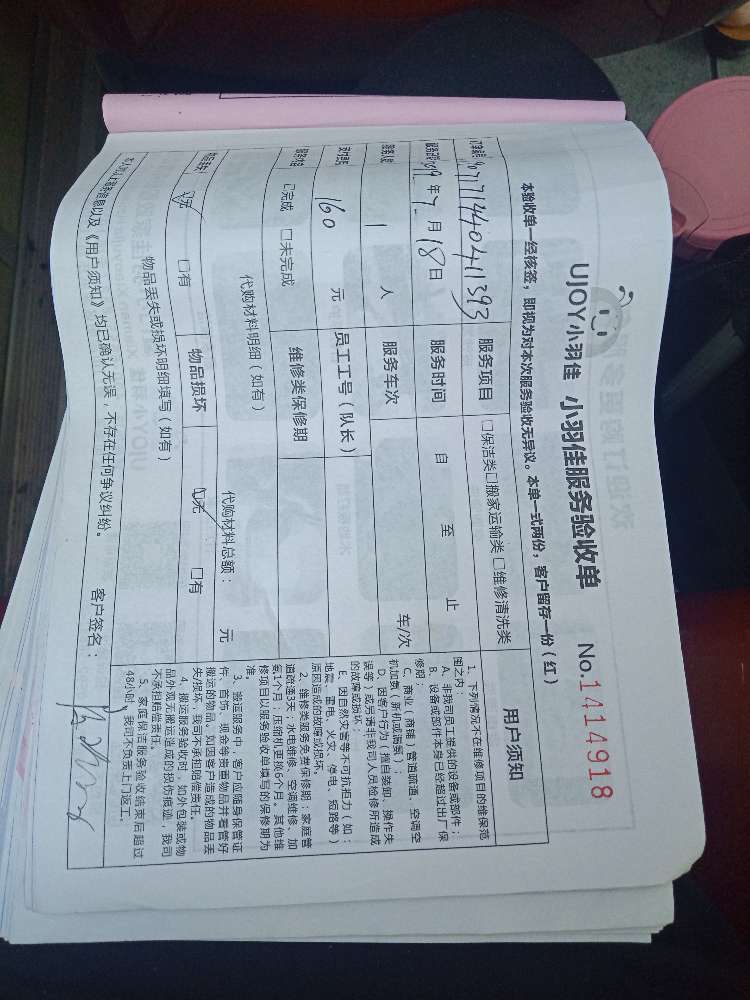 UJOY小羽佳 小羽佳服务验收单 No.1414918
本验收单一经核签，即视为对本次服务验收无异议。本单一式两份，客户留存一份（红）
服务项目 □保洁类□搬家运输类□维修清洗类
年7月18日 服务时间 自 至 止
1 人 服务车次 车/次
160 元 员工工号（队长）
□完成 □未完成 维修类保修期
代购材料明细（如有） 代购材料总额： 元
□无 □有 物品损坏 □无 □有
物品丢失或损坏明细填写（如有）
《用户须知》均已确认无误，不存在任何争议纠纷。 客户签名：
用户须知
1、下列情况不在维修项目的维保范
围之内：
A、非我司员工提供的设备或部件；
B、设备或部件本身已经超过出厂保
修期；
C、商业（商铺）管道疏通、空调空
机加氟（新机或漏氟）；
D、因客户行为（擅自装卸、操作失
误等）或另请非我司人员检修所造成
的故障或损坏；
E、因自然灾害等不可抗拒力（如：
地震、雷电、火灾、停电、短路等）
原因造成的故障或损坏。
2、维修类服务免费保修期：家庭管
道疏通3天；水电维修、空调维修、加
氟1个月；压缩机更换6个月。其他维
修项目以服务验收单填写的保修期为
准。
3、搬运服务中，客户应随身保管证
件、首饰、现金等贵重物品并看管好
搬运的物品，如因客户造成的物品丢
失/损坏，我司不承担赔偿责任。
4、搬运服务验收时，如外包装或物
品外观无搬运造成的损伤痕迹，我司
不承担赔偿责任。
5、家庭保洁服务验收结束后超过
48小时，我司不负责上门返工。